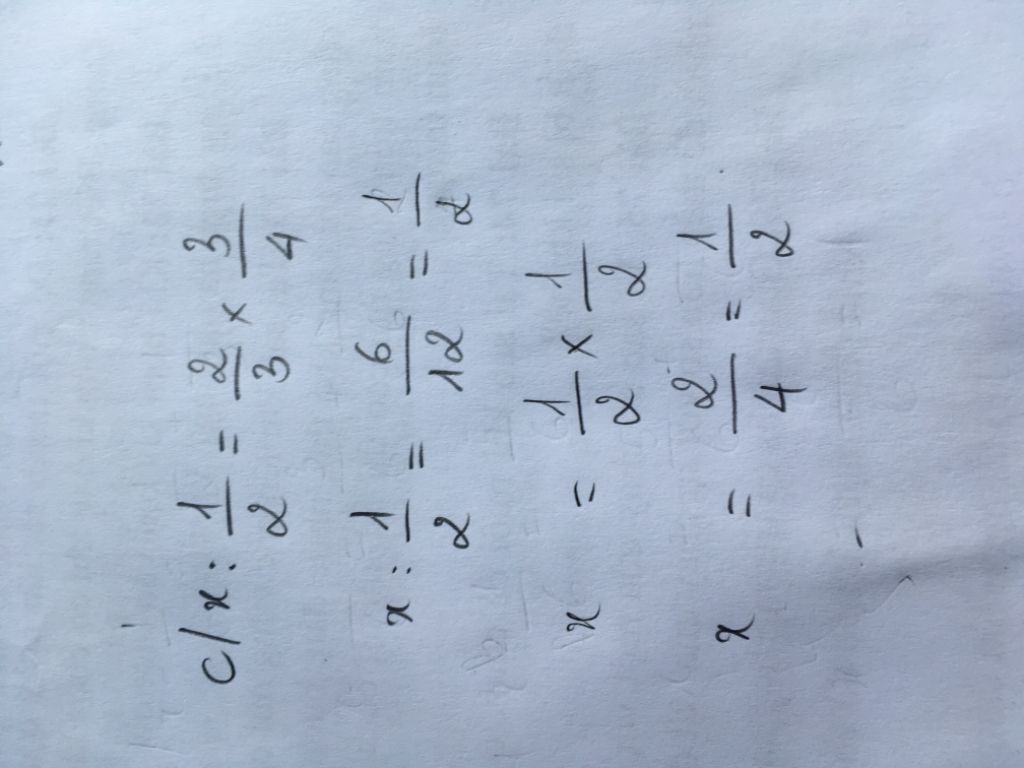 c/ x : 1/2 = 2/3 x 3/4
x : 1/2 = 6/12 = 1/2
x = 1/2 x 1/2
x = 2/4 = 1/2